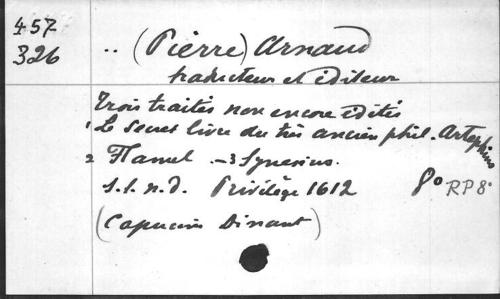 457
326
.. (Pierre) Arnaud
traducteur et éditeur
Trois traités non encore édités
1 Le secret livre du très ancien phil. Artephius
2 Flamel - 3 Synesius.
s.l.n.d. Privilège 1612 8° RP8°
(Capucins Dinant)